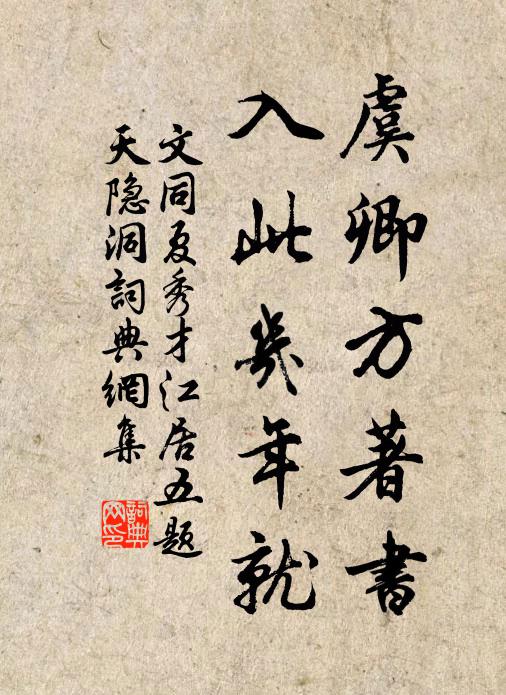 虞卿方著書
入此幾年就
文同夏秀才江居五题
天隐洞詞典網集
詞典網印